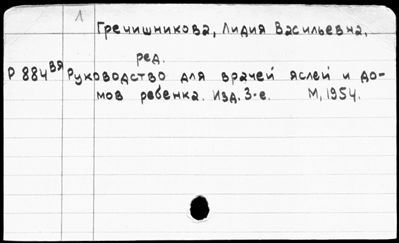 1
Гречишникова, Лидия Васильевна,
ред.
Р 884 вя Руководство для врачей яслей и до-
мов ребенка. Изд. 3-е. М, 1954.